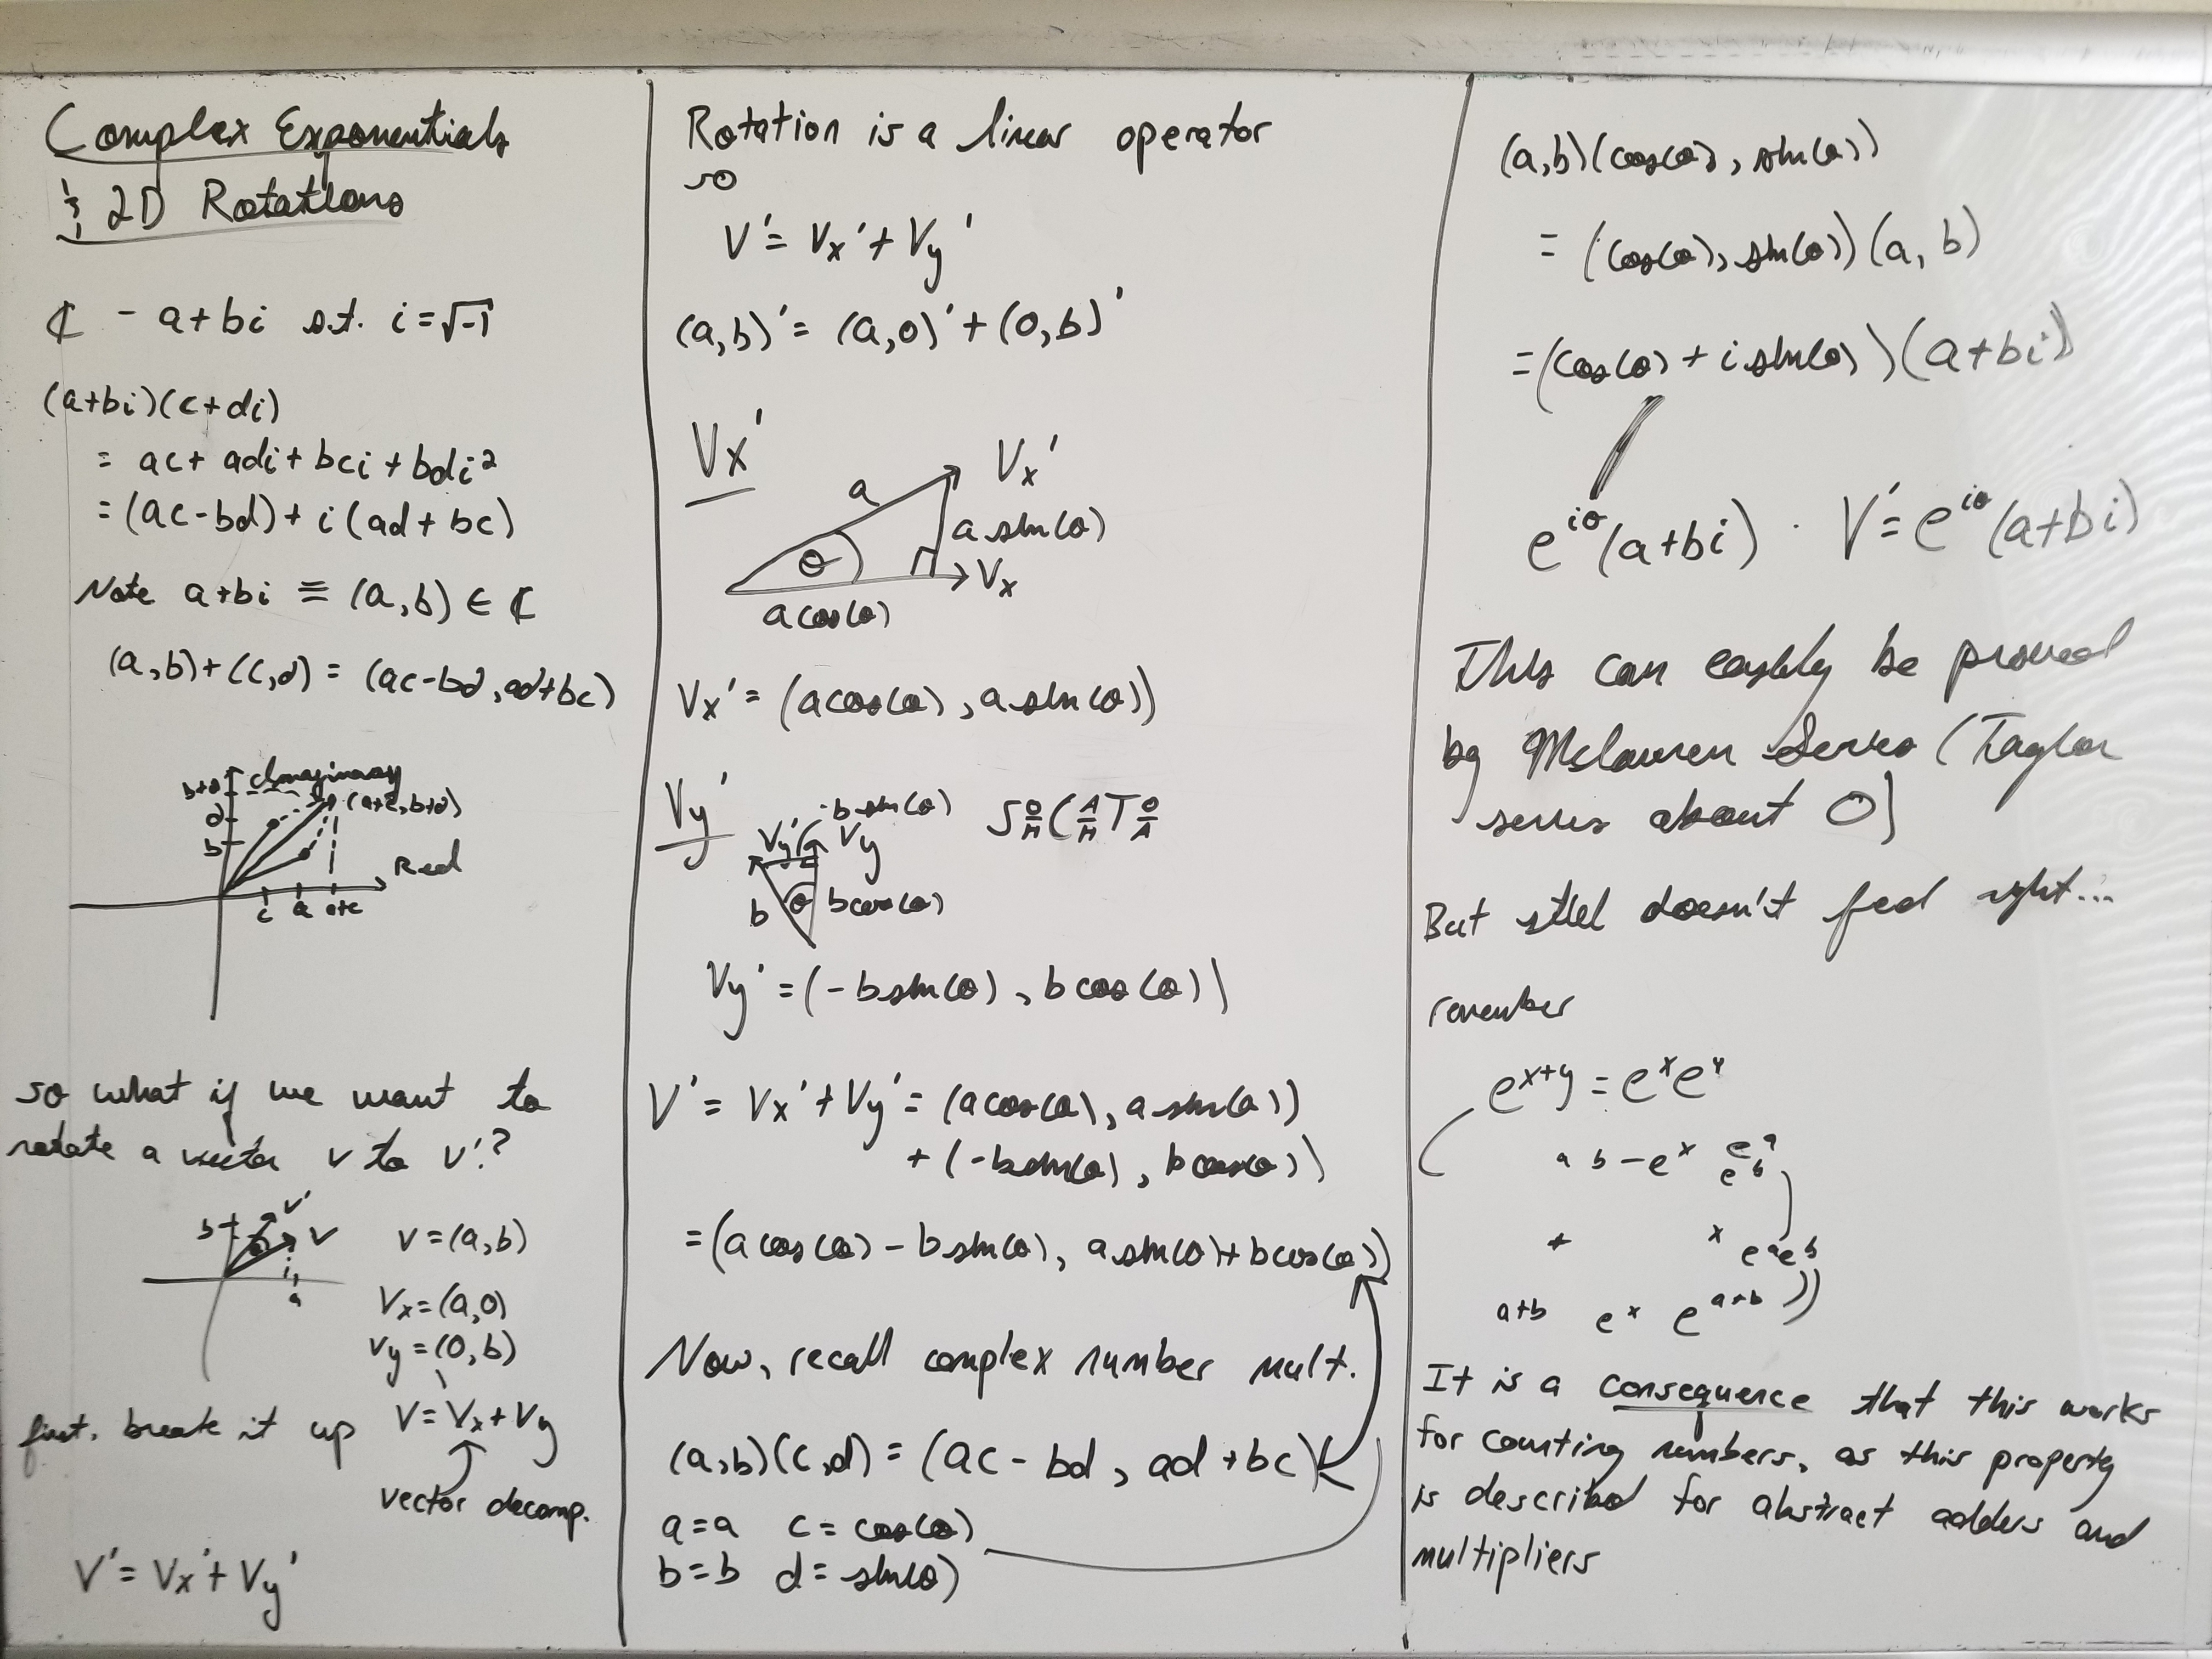 Complex Exponentials
& 2D Rotations
ℂ - a+bi s.t. i=√-1
(a+bi)(c+di)
= ac+ adi+ bci + bdi²
= (ac-bd)+ i(ad+bc)
Note a+bi ≡ (a,b) ∈ ℂ
(a,b)+(c,d) = (ac-bd, ad+bc)
Imaginary
b+d
(a+c, b+d)
d
b
Real
c a a+c
so what if we want to
rotate a vector v to v'?
v'
b
θ
v
a
v=(a,b)
Vx=(a,0)
Vy=(0,b)
first, break it up V=Vx+Vy
vector decomp.
V'= Vx'+Vy'
Rotation is a linear operator
so
V'= Vx'+ Vy'
(a,b)'= (a,0)'+(0,b)'
Vx'
Vx'
a
a sin(θ)
θ
Vx
a cos(θ)
Vx'= (acos(θ), a sin(θ))
Vy'
-b sin(θ)
S O/H C A/H T O/A
Vy'
Vy
b
θ
bcos(θ)
Vy'=(-bsin(θ), bcos(θ))
V'= Vx'+Vy'= (acos(θ), a sin(θ))
+ (-bsin(θ), bcos(θ))
=(a cos(θ) - bsin(θ), a sin(θ)+ bcos(θ))
Now, recall complex number mult.
(a,b)(c,d) = (ac- bd, ad +bc)
a=a c= cos(θ)
b=b d= sin(θ)
(a,b)(cos(θ), sin(θ))
= (cos(θ), sin(θ))(a, b)
=(cos(θ) + i sin(θ))(a+bi)
e^iθ(a+bi) . V'=e^iθ(a+bi)
This can easily be proved
by Mclauren Series (Taylor
series about 0)
But still doesn't feel right...
remember
e^x+y = e^x e^y
a b - e^x e^a
e^b
+ x e^a e^b
a+b e^x e^a+b
It is a consequence that this works
for counting numbers, as this property
is described for abstract adders and
multipliers